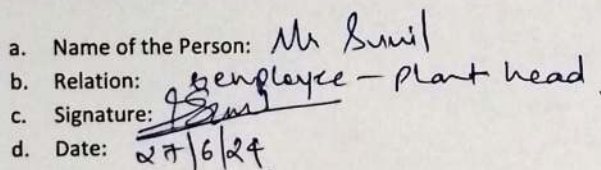 a. Name of the Person: Mr Sunil
b. Relation: employee - plant head
c. Signature:
d. Date: 27/6/24